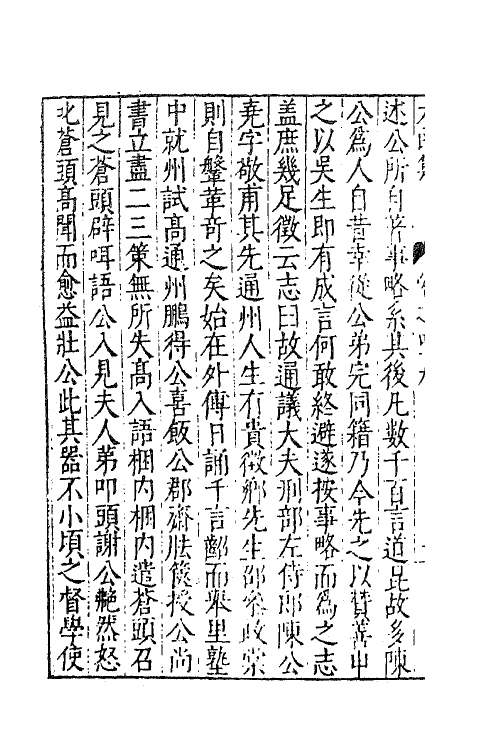 述公所自著事略系其後凡數千百言道昆故多陳
公為人自昔幸從公弟完同籍乃今先之以贊善申
之以吳生即有成言何敢終避遂按事略而為之志
盖庶幾足徵云志曰故通議大夫刑部左侍郎陳公
堯字敬甫其先通州人生有貴徵鄉先生邵客政棠
則自髫丱奇之矣始在外傅日誦千言齠而舉里塾
中就州試高通州鵬得公喜飯公郡齋胠篋授公尚
書立盡二三策無所失高入語梱內梱內遣蒼頭召
見之蒼頭辟咡語公入見夫人苐叩頭謝公艴然怒
北蒼頭高聞而愈益壯公此其器不小頃之督學使